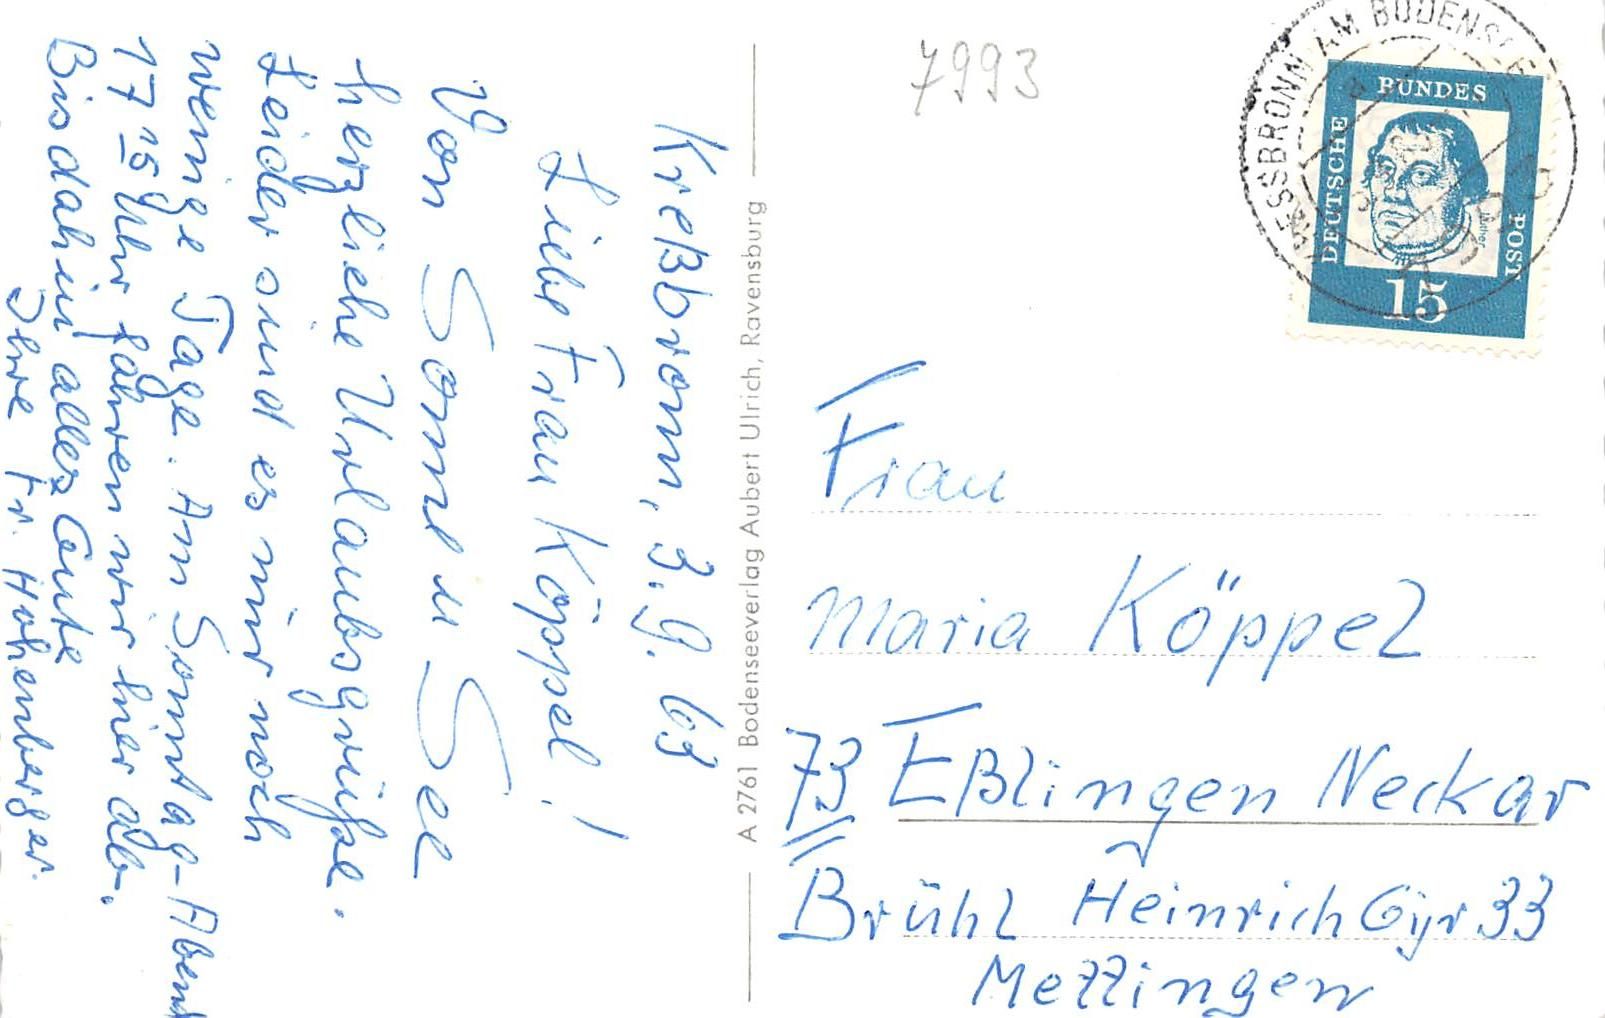 Kreßbronn, 3.9.63
Liebe Frau Köppel!
Von Sonne u See
herzliche Urlaubsgrüße.
Leider sind es nur noch
wenige Tage. Am Sonntag-Abend
17 15 Uhr fahren wir hier ab.
Bis dahin alles Gute
Ihre Fr. Hohenberger.
A 2761 Bodenseeverlag Aubert Ulrich, Ravensburg
7993
KRESSBRONN AM BODENSEE
DEUTSCHE
BUNDES
POST
Luther
15
Frau
Maria Köppel
73 Eßlingen Neckar
Brühl Heinrich Gyr 33
Mettingen